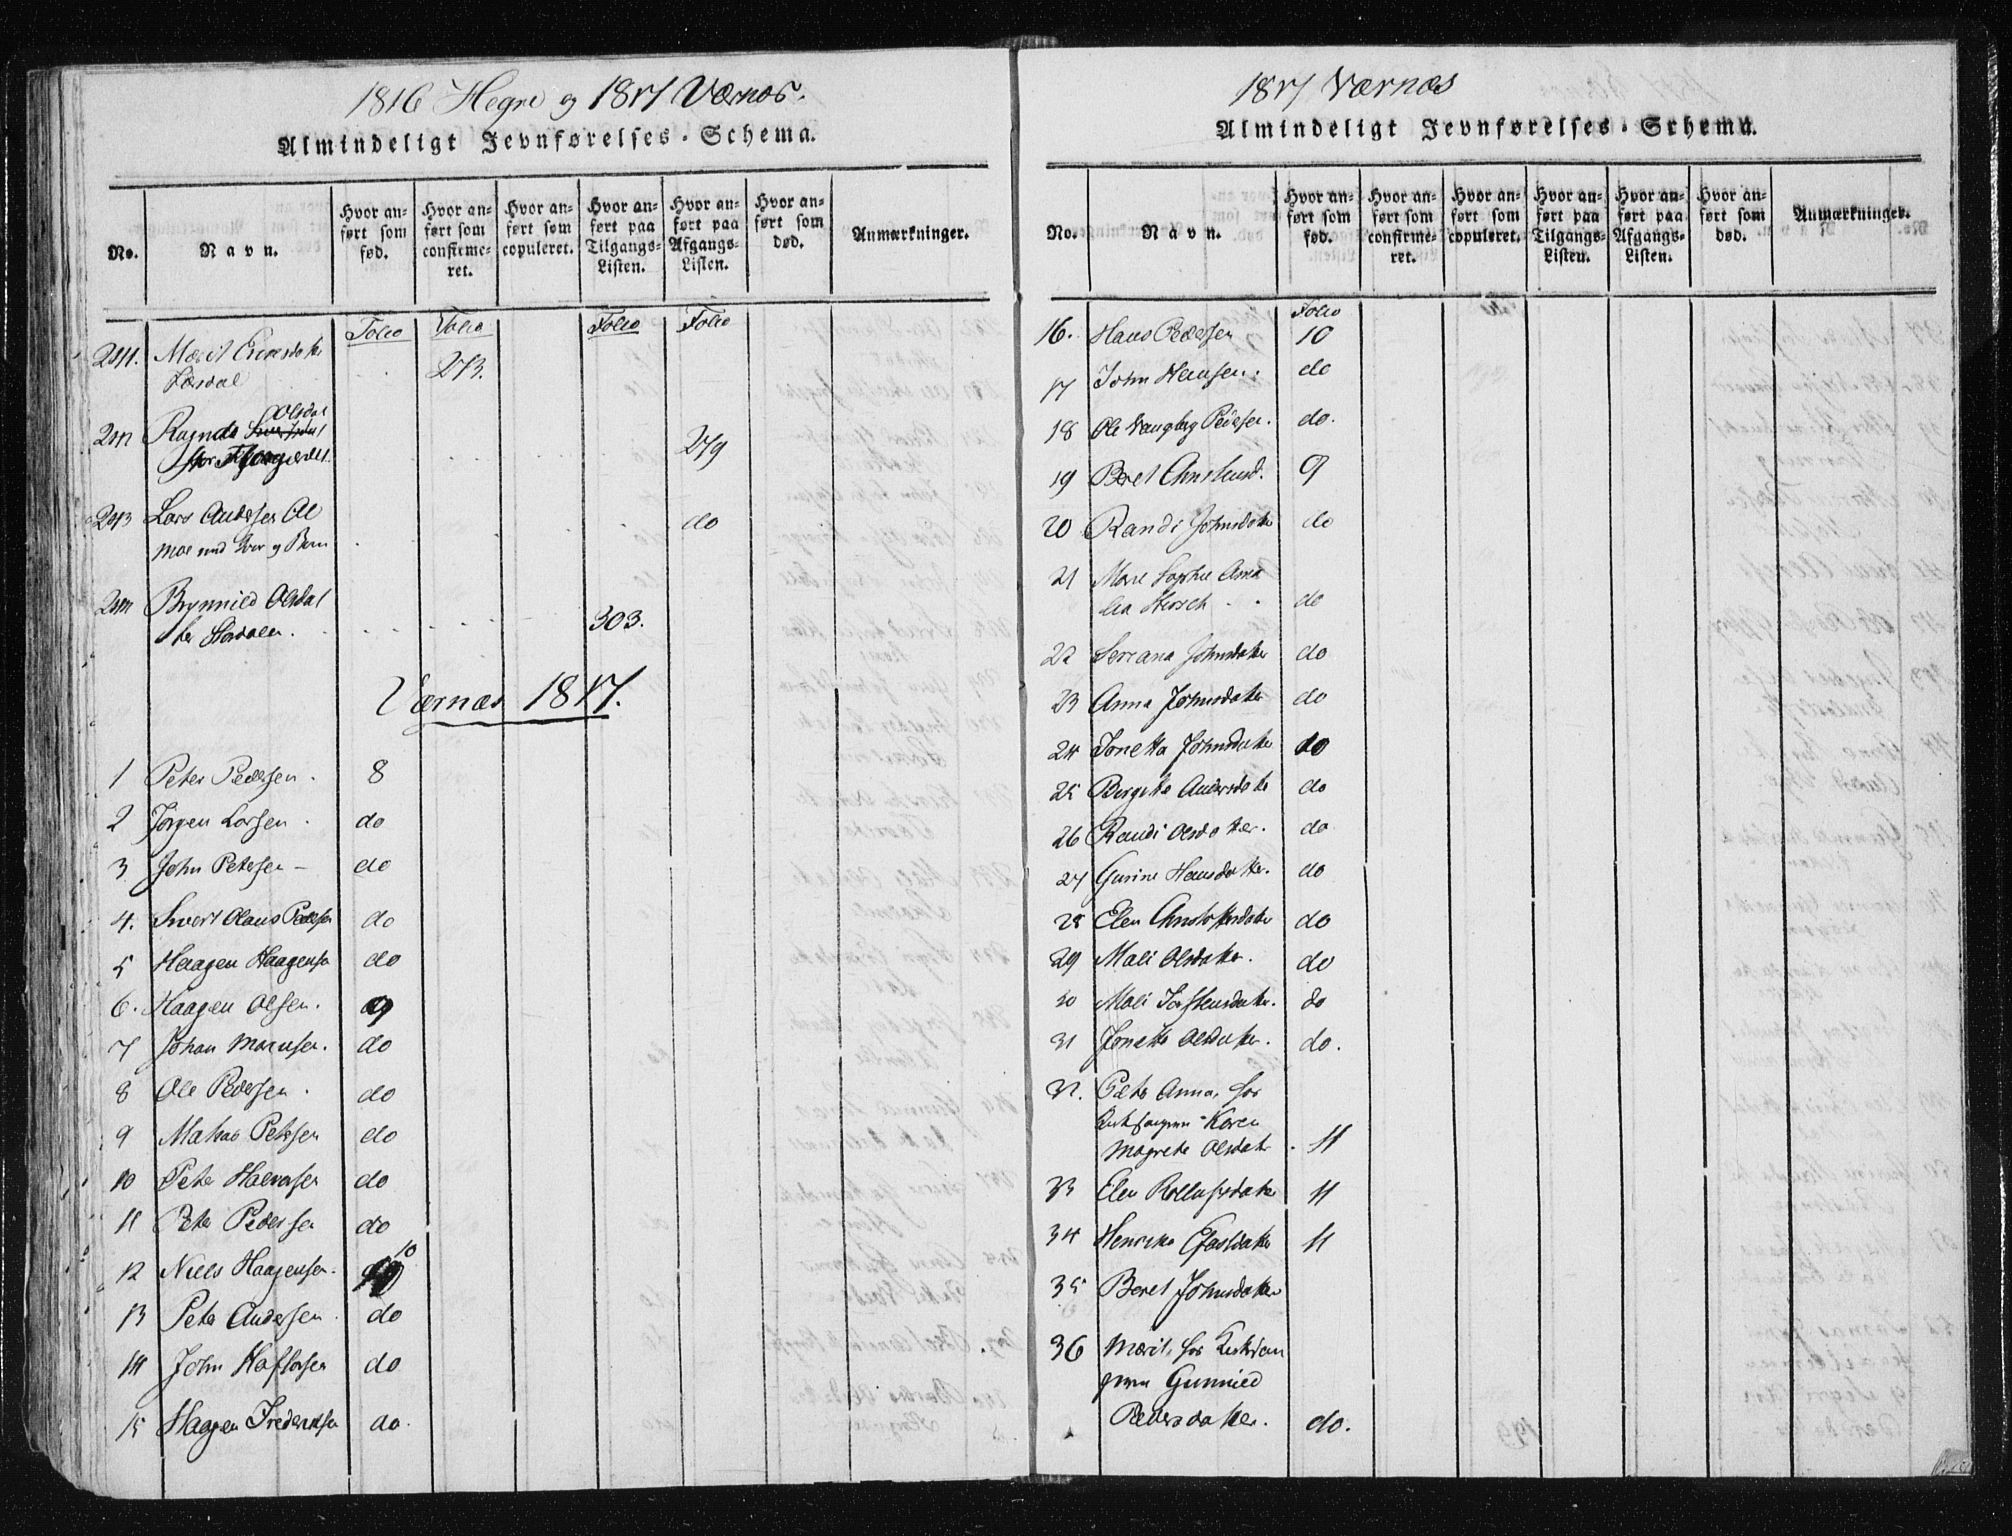 1816 Hegre og 1817 Værnæs.
Almindeligt Jevnførelses-Schema.
No.
Navn.
Hvor anført som fød.
Hvor anført som confirmeret.
Hvor anført som copuleret.
Hvor anført paa Tilgangs-Listen.
Hvor anført paa Afgangs-Listen.
Hvor anført som død.
Anmærkninger.
Folio Folio Folio Folio
241. Marit
273.
242 Ragnda Olsdat
279
243 Lars Andersen
Moe med og Barn do
244 Brynnild Olsdat
ter Stordalen. 303.
Værnæs 1817.
1 Peter Pedersen. 8
2 Jørgen Larsen. do
3 John Petersen – do
4. Sivert Olaus Pedersen do
5 Haagen Haagensen do
6. Haagen Olsen. 9
7 Johan do
8 Ole Pedersen. do
9 Mathias Petersen do
10 Peter Halvorsen do
11 Peter Pedersen do
12 Niels Haagensen. 10
13 Peter Andersen do
14 John Haftorsen do
15 Haagen Fredericksen do.
1817 Værnæs
Almindeligt Jevnførelses-Schema.
No.
Navn.
Hvor anført som fød.
Hvor anført som confirmeret.
Hvor anført som copuleret.
Hvor anført paa Tilgangs-Listen.
Hvor anført paa Afgangs-Listen.
Hvor anført som død.
Anmærkninger.
Folio
16. Hans Pedersen 10
17 John Hansen. do
18 Ole Vangberg Pedersen. do.
19 Beret 9
20 Randi Johnsdatter do
21 Marie Sophie Ama
lia do
22 Johnsdatter do
23 Anna Johnsdatter do
24 Jonetta Johnsdatter do
25 Birgitte Andersdatter do
26 Randi Olsdatter. do
27 Gurine Hansdatter. do
28 Elen do
29 Mali Olsdatter. do
30 Mali Torstensdatter. do
31 Jonetta Olsdatter. do.
32. Anna, for
Karen
Magrete Olsdatter. 11
33 Elen 11
34 11
35 Beret Johnsdatter
36 Marit, for
Gunnild
Pedersdatter. do.